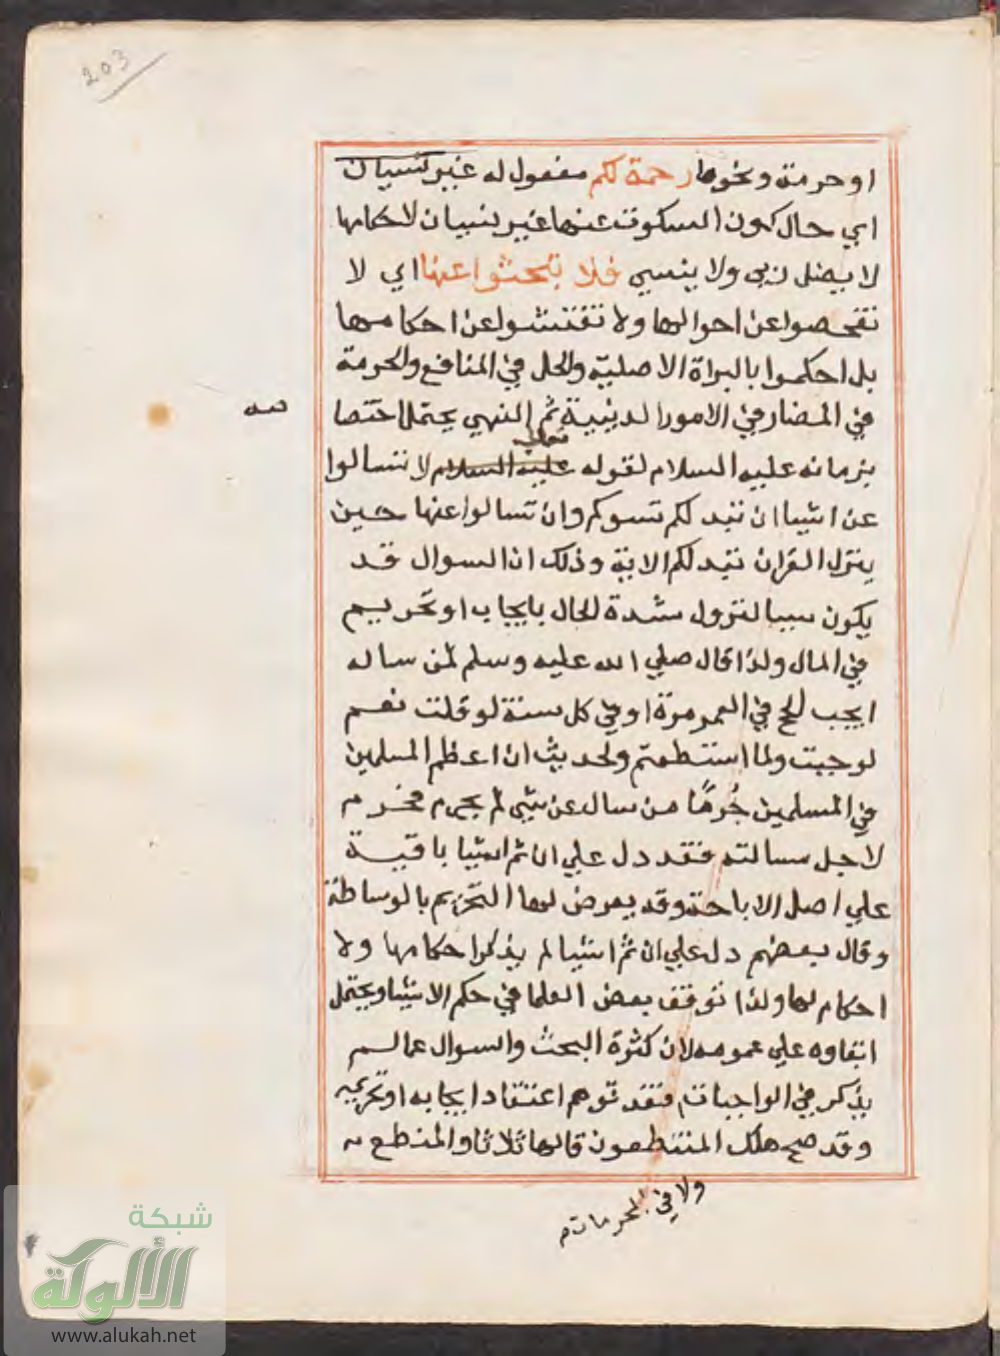 203
او حرمة ونحوها رحمة لكم مفعول له غير نسيان
اي حال كون السكوت عنها غير نسيان لاحكامها
لا يضل ربي ولا ينسي فلا تبحثوا عنها اي لا
تفحصوا عن احوالها ولا تفتشوا عن احكامها
بل احكموا بالبراة الاصلية والحل في المنافع والحرمة
في المضار في الامور الدينية ثم النهي يحتمل اختصا
صه
بزمانه عليه السلام لقوله عليه السلام لا تسالوا
تعالى
عن اشيا ان تبد لكم تسوكم وان تسالوا عنها حين
ينزل القران تبد لكم الاية وذلك ان السوال قد
يكون سببا لنزول شدة الحال بايجاب او تحريم
في المال ولذا قال صلي الله عليه وسلم لمن ساله
ايجب الحج في العمر مرة او في كل سنة لو قلت نعم
لوجبت ولما استطعتم ولحديث ان اعظم المسلمين
في المسلمين جُرمًا من سال عن شي لم يحرم فحرم
لاجل مسالته فقد دل علي ان ثم اشيا باقية
علي اصل الاباحة وقد يعرض لها التحريم بالوساطة
وقال بعضهم دل علي ان ثم اشيا لم يذكر احكامها ولا
احكام لها ولذا توقف بعض العلما في حكم الاشيا ويحتمل
ابقاوه علي عمومه لان كثرة البحث والسوال عما لم
يذكر في الواجبات فقد توهم اعتقاد ايجابه او تحريمه
وقد صح هلك المتنطعون قالها ثلاثا والمتنطع
ولا في المحرمات
شبكة
الألوكة
www.alukah.net